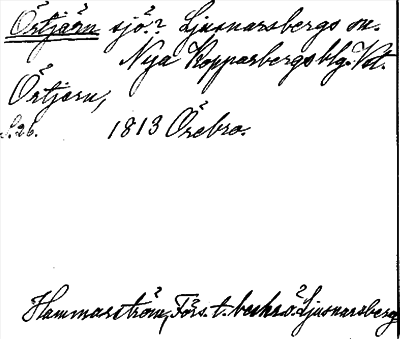 Örtjärn sjö? Ljusnarsbergs sn.
Nya Kopparbergs blg. Vst.
Örtjern,
S. 26. 1813 Örebro.
Hammarström, Förs. t. beskr. ö. Ljusnarsberg